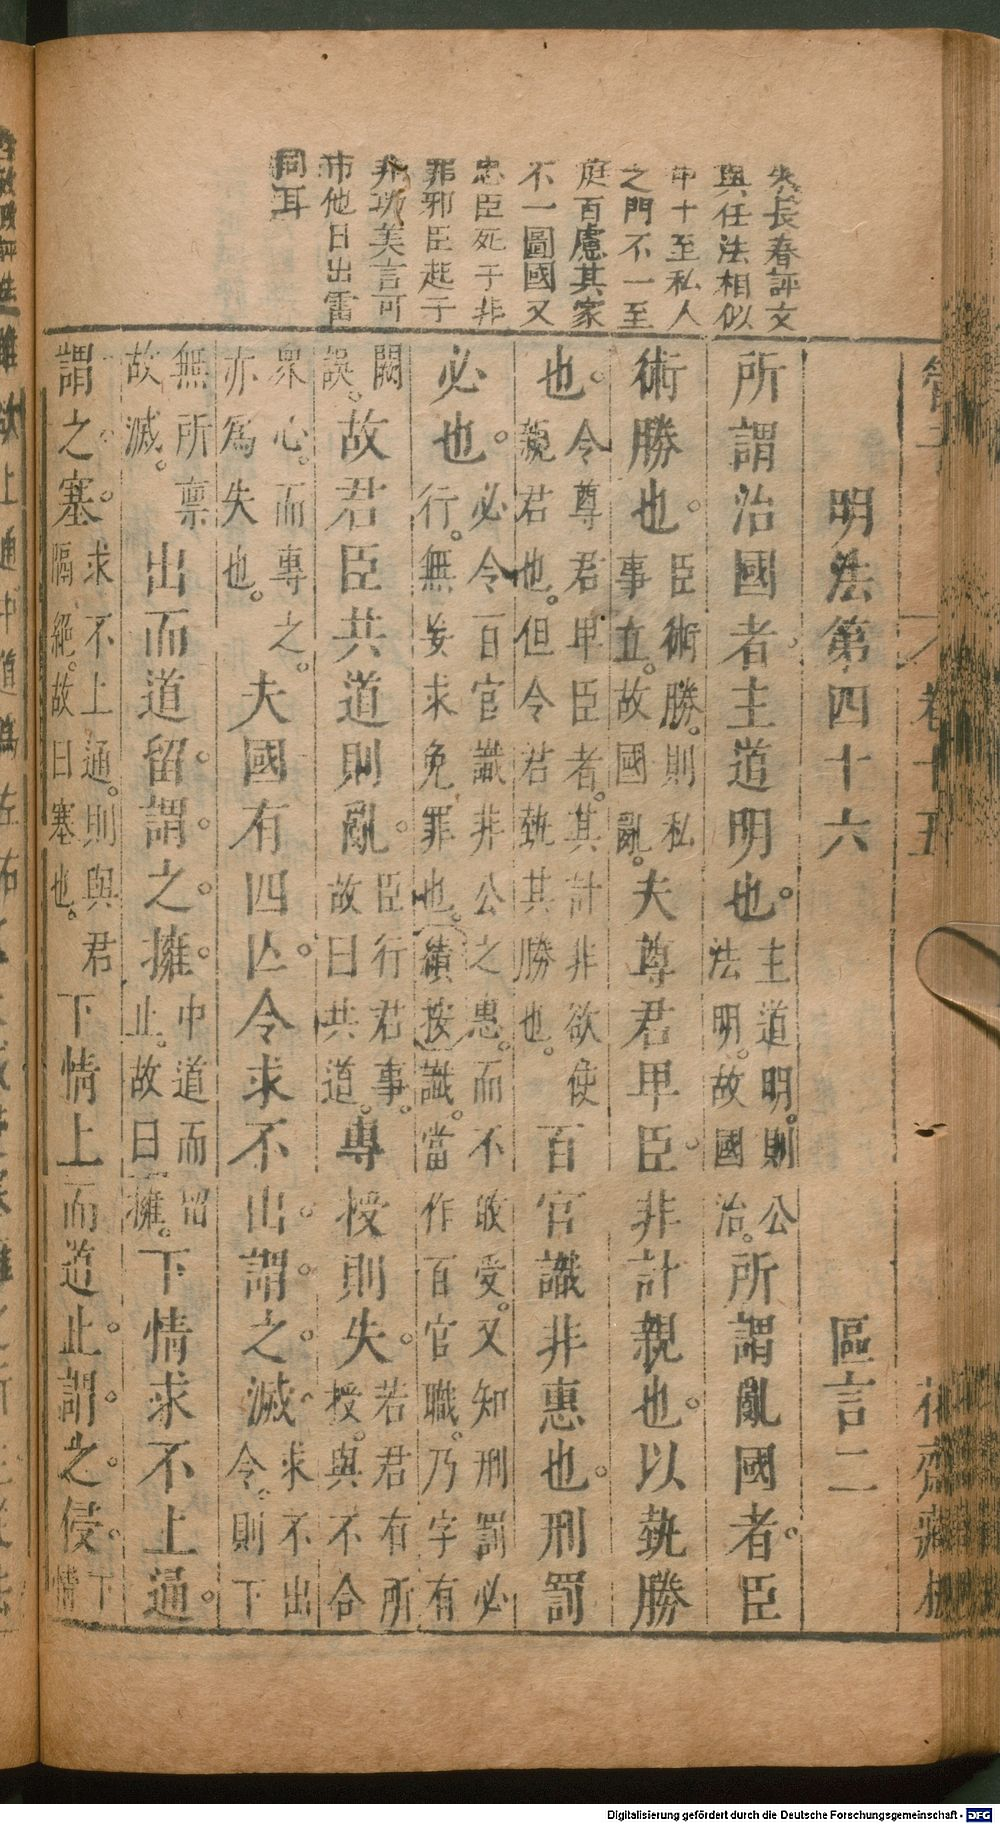 朱長春評文
與任法相似
中十至私人
之門不一至
庭百慮其家
不一圖國又
忠臣死于非
罪邪臣起于
非功美言可
市他日出雷
同耳
卷十五
明法第四十六 區言二
所謂治國者主道明也主道明則公法明故國治所謂亂國者臣
術勝也臣術勝則私事立故國亂夫尊君卑臣非計親也以執勝
也令尊君卑臣者其計非欲使親君也但令君執其勝也百官識非惠也刑罰
必也必令百官識非公之惠而不敢受又知刑罰必行無妄求免罪也績按識當作百官職乃字有
闕誤故君臣共道則亂臣行君事故曰共道專授則失若君有所授與不合
衆心而專之亦為失也夫國有四亡令求不出謂之滅求不出令則下
無所稟故滅出而道留謂之擁中道而留止故曰擁下情求不上通
謂之塞求不上通則與君隔絕故曰塞也下情上而道止謂之侵下情
雖欲上通中道為左右
Digitalisierung gefördert durch die Deutsche Forschungsgemeinschaft - DFG